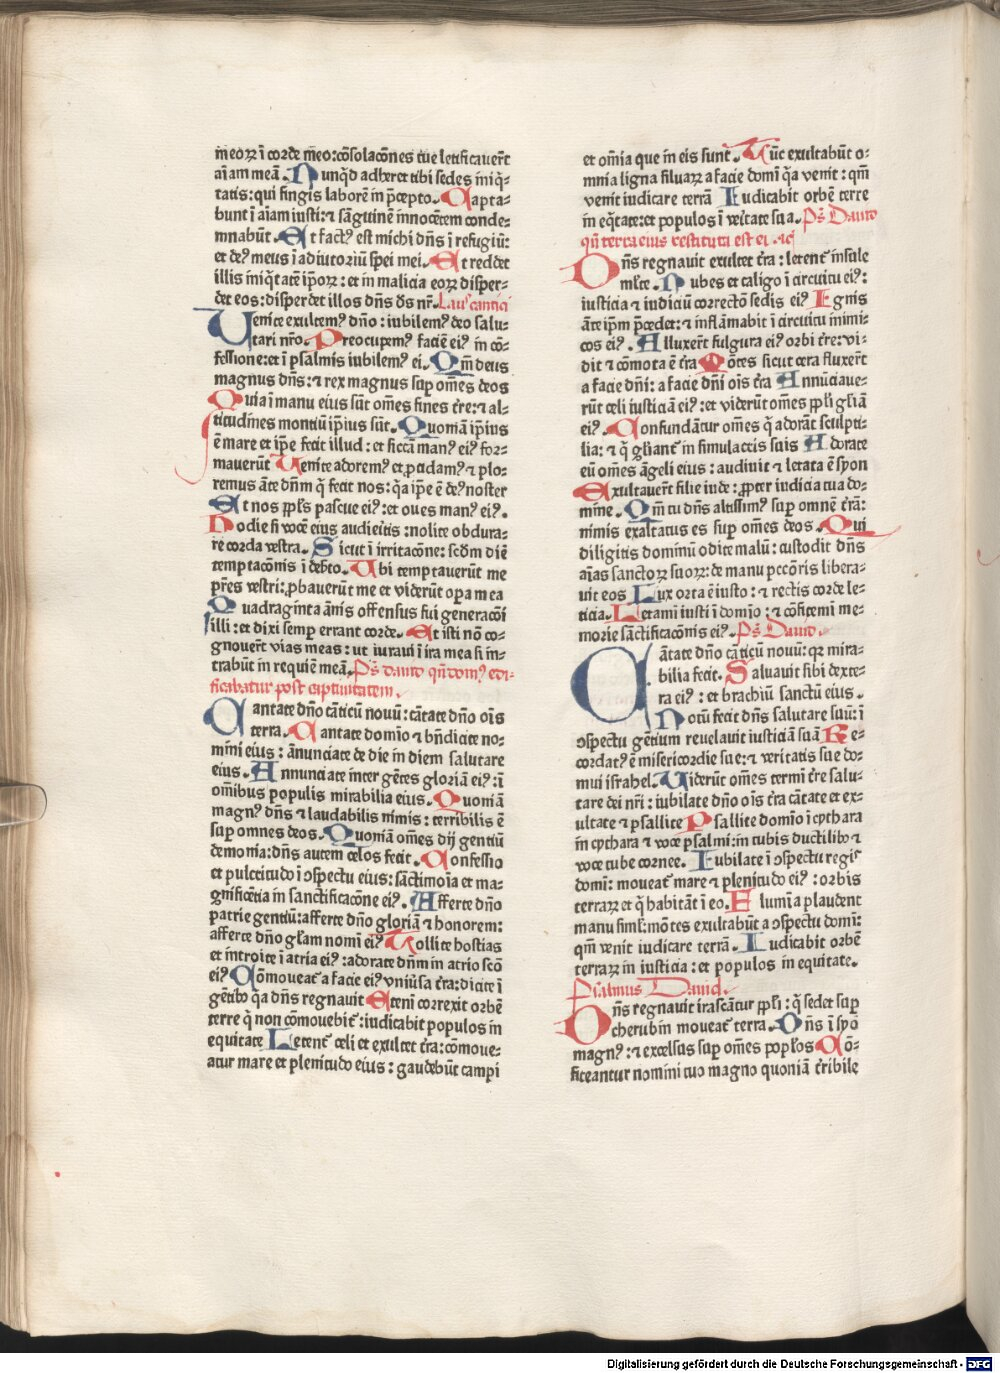 meoꝝ ī corde meo: cōsolacōnes tue letificauerūt
aīam meā. Nunqͥd adheret tibi sedes iniqͥ-
tatis: qui fingis laborē in p̄cepto. Capta-
bunt ī aīam iusti: ⁊ sāguinē innocētem conde-
mnabūt. Et factꝰ est michi dn̄s ī refugiū:
et deꝰ meus ī adiutoriū spei mei. Et reddet
illis iniqͥtatē ipoꝝ: et in malicia eoꝝ disper-
det eos: disperdet illos dn̄s ds̄ nr̄. Lauſ cantici
Uenite exultemꝰ dn̄o: iubilemꝰ deo salu-
tari nr̄o. Preocupemꝰ faciē eiꝰ in cō-
fessione: et ī psalmis iubilemꝰ ei. Qm̄ deus
magnus dn̄s: ⁊ rex magnus sup om̄es deos
Quia ī manu eius sūt om̄es fines tr̄e: ⁊ al-
titudines montiū ip̄ius sūt. Quoniā ip̄ius
ē mare et ip̄e fecit illud: et siccā manꝰ eiꝰ for-
mauerūt Uenite adoremꝰ et ꝓcidamꝰ ⁊ plo-
remus āte dn̄m q̄ fecit nos: qͥa ip̄e ē deꝰ noster
Et nos pp̄ls pascue eiꝰ: et oues manꝰ eiꝰ.
Hodie si vocē eius audieitis: nolite obdura-
re corda vestra. Sicut ī irritacōne: scd̄m diē
temptacōnis ī deserto. Ubi temptauerūt me
p̄res vestri: ꝓbauerūt me et viderūt opa mea
Quadraginta ānis offensus fui generacōi
illi: et dixi semp errant corde. Et isti nō co-
gnouerūt vias meas: ut iuraui ī ira mea si in-
trabūt in requiē meā. Ps̄ dauid qn̄ domꝰ edi-
ficabatur post captiuitatem.
Cantate dn̄o cāticū nouū: cātate dn̄o oīs
terra. Cantate domīo ⁊ bn̄dicite no-
mini eius: ānunciate de die in diem salutare
eius. Annunciate inter gētes gloriā eiꝰ: ī
om̄ibus populis mirabilia eius. Quoniā
magnꝰ dn̄s ⁊ laudabilis nimis: terribilis ē
sup omnes deos. Quoniā om̄es dij gentiū
demonia: dn̄s autem celos fecit. Confessio
et pulcritudo ī ↄspectu eius: sāctimoīa et ma-
gnificētia in sanctificacōne eiꝰ. Afferte dn̄o
patrie gentiū: afferte dn̄o gloriā ⁊ honorem:
afferte dn̄o gl̄am nomī eiꝰ Tollite hostias
et introite ī atria eiꝰ: adorate dn̄m in atrio scō
eiꝰ Cōmoueat᷑ a facie eiꝰ vniūsa tr̄a: dicite ī
gētibꝰ qͥa dn̄s regnauit Eteni correxit orbē
terre q̄ non cōmouebit᷑: iudicabit populos in
equitate Letent᷑ celi et exultet tr̄a: cōmoue-
atur mare et plenitudo eius: gaudebūt campi
et om̄ia que in eis sunt. Tūc exultabūt o-
mnia ligna siluaꝝ a facie domī qͥa venit: qm̄
venit iudicare terrā Iudicabit orbē terre
in eqͥtate: et populos ī veritate sua. Ps̄ Dauid
qn̄ terra eius restituta est ei ⁊cͣ
Dn̄s regnauit exultet tr̄a: letent᷑ insule
ml̄te. Nubes et caligo ī circuitu eiꝰ:
iusticia ⁊ iudiciū correctō sedis eiꝰ Ignis
āte ip̄m p̄cedet: ⁊ inflāmabit ī circuitu inimi-
cos eiꝰ. Alluxer̄t fulgura eiꝰ orbi tr̄e: vi-
dit ⁊ cōmota ē tr̄a Mōtes sicut cera fluxer̄t
a facie dn̄i: a facie dn̄i oīs tr̄a Annūciaue-
rūt celi iusticiā eiꝰ: et viderūt om̄es ppl̄i gl̄iā
eiꝰ. Confundātur om̄es q̄ adorāt sculpti-
lia: ⁊ q̄ gl̄iant᷑ in simulacris suis Adorate
eū om̄es āgeli eius: audiuit ⁊ letata ē syon
Exultauer̄t filie iude: ꝓpter iudicia tua do-
mine. Qm̄ tu dn̄s altissimꝰ sup omnē tr̄ā:
nimis exaltatus es sup om̄es deos. Qui
diligitis dominū odite malū: custodit dn̄s
aīas sanctoꝝ suoꝝ: de manu pccōris libera-
uit eos Lux orta ē iusto: ⁊ rectis corde le-
ticia. Letamī iusti ī domīo: ⁊ cōfitemī me-
morie sāctificacōnis eiꝰ. Ps̄ Dauid.
Cātate dn̄o cāticū nouū: qꝛ mira-
bilia fecit. Saluauit sibi dexte-
ra eiꝰ: et brachiū sanctū eius.
Notū fecit dn̄s salutare suū: ī
ↄspectu gētium reuelauit iusticiā suā Re-
cordatꝰ ē misericordie sue: ⁊ veritatis sue do-
mui israhel. Uiderūt om̄es termī tr̄e salu-
tare dei nr̄i: iubilate dn̄o oīs tr̄a cātate et ex-
ultate ⁊ psallite Psallite domīo ī cythara
in cythara ⁊ voce psalmi: in tubis ductilibꝰ ⁊
voce tube cornee. Iubilate ī ↄspectu regis
domī: moueat᷑ mare ⁊ plenitudo eiꝰ: orbis
terraꝝ et q̄ habitāt ī eo. Flumīa plaudent
manu siml̄: mōtes exultabūt a ↄspectu domī:
qm̄ venit iudicare terrā. Iudicabit orbē
terraꝝ in iusticia: et populos in equitate.
Psalmus Dauid.
Dn̄s regnauit irascātur ppl̄i: q̄ sedet sup
cherubin moueat᷑ terra. Dn̄s ī syō
magnꝰ: ⁊ excelsus sup om̄es popl̄os Cō-
fiteantur nomini tuo magno quoniā tr̄ibile
Digitalisierung gefördert durch die Deutsche Forschungsgemeinschaft - DFG